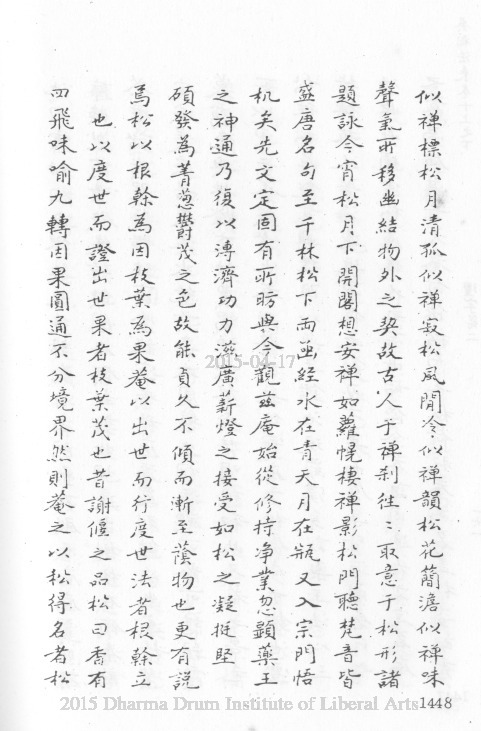 似禅標松月清孤似禅寂松風閒冷似禅韻松花簡澹似禅味
聲氣所移幽結物外之契故古人于禅刹往〻取意于松形諸
題詠今宵松月下開閣想安禅如蘿幌棲禅影松門聽梵音皆
盛唐名句至千林松下兩函經水在青天月在瓶又入宗門悟
机矣先文定固有所昉與今觀茲庵始從修持净業忽顕藥王
之神通乃復以溥濟功力滋廣薪燈之接受如松之凝挺堅
碩發為菁葱鬱茂之色故能貞久不傾而漸至蔭物也更有説
焉松以根榦為因枝葉為果菴以出世而行度世法者根榦立
也以度世而證出世果者枝葉茂也昔謝偃之品松曰香有
四飛味喻九轉因果圓通不分境界然則菴之以松得名者松
2015-04-17
2015 Dharma Drum Institute of Liberal Arts
1448